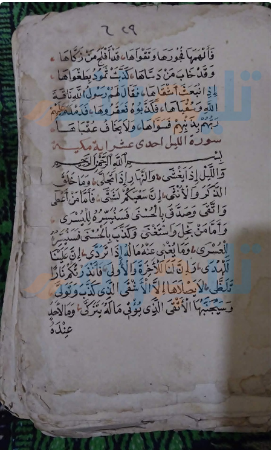 ٦٢٩
فَأَلْهَمَهَا فُجُورَهَا وَتَقْوَاهَا قَدْ أَفْلَحَ مَنْ زَكَّاهَا
وَقَدْ خَابَ مَنْ دَسَّاهَا كَذَّبَتْ ثَمُودُ بِطَغْوَاهَا
إِذِ انْبَعَثَ أَشْقَاهَا فَقَالَ لَهُمْ رَسُولُ اللَّهِ نَاقَةَ
اللَّهِ وَسُقْيَاهَا فَكَذَّبُوهُ فَعَقَرُوهَا فَدَمْدَمَ عَلَيْهِمْ
رَبُّهُمْ بِذَنْبِهِمْ فَسَوَّاهَا وَلَا يَخَافُ عُقْبَاهَا
سورة الليل احدى عشر اية مكية
بِسْمِ اللَّهِ الرَّحْمَنِ الرَّحِيمِ
وَاللَّيْلِ إِذَا يَغْشَى وَالنَّهَارِ إِذَا تَجَلَّى وَمَا خَلَقَ
الذَّكَرَ وَالْأُنْثَى إِنَّ سَعْيَكُمْ لَشَتَّى فَأَمَّا مَنْ أَعْطَى
وَاتَّقَى وَصَدَّقَ بِالْحُسْنَى فَسَنُيَسِّرُهُ لِلْيُسْرَى
وَأَمَّا مَنْ بَخِلَ وَاسْتَغْنَى وَكَذَّبَ بِالْحُسْنَى فَسَنُيَسِّرُهُ
لِلْعُسْرَى وَمَا يُغْنِي عَنْهُ مَالُهُ إِذَا تَرَدَّى إِنَّ عَلَيْنَا
لَلْهُدَى وَإِنَّ لَنَا لَلْآخِرَةَ وَالْأُولَى فَأَنْذَرْتُكُمْ نَارًا
تَلَظَّى لَا يَصْلَاهَا إِلَّا الْأَشْقَى الَّذِي كَذَّبَ وَتَوَلَّى
وَسَيُجَنَّبُهَا الْأَتْقَى الَّذِي يُؤْتِي مَالَهُ يَتَزَكَّى وَمَا لِأَحَدٍ
عِنْدَهُ